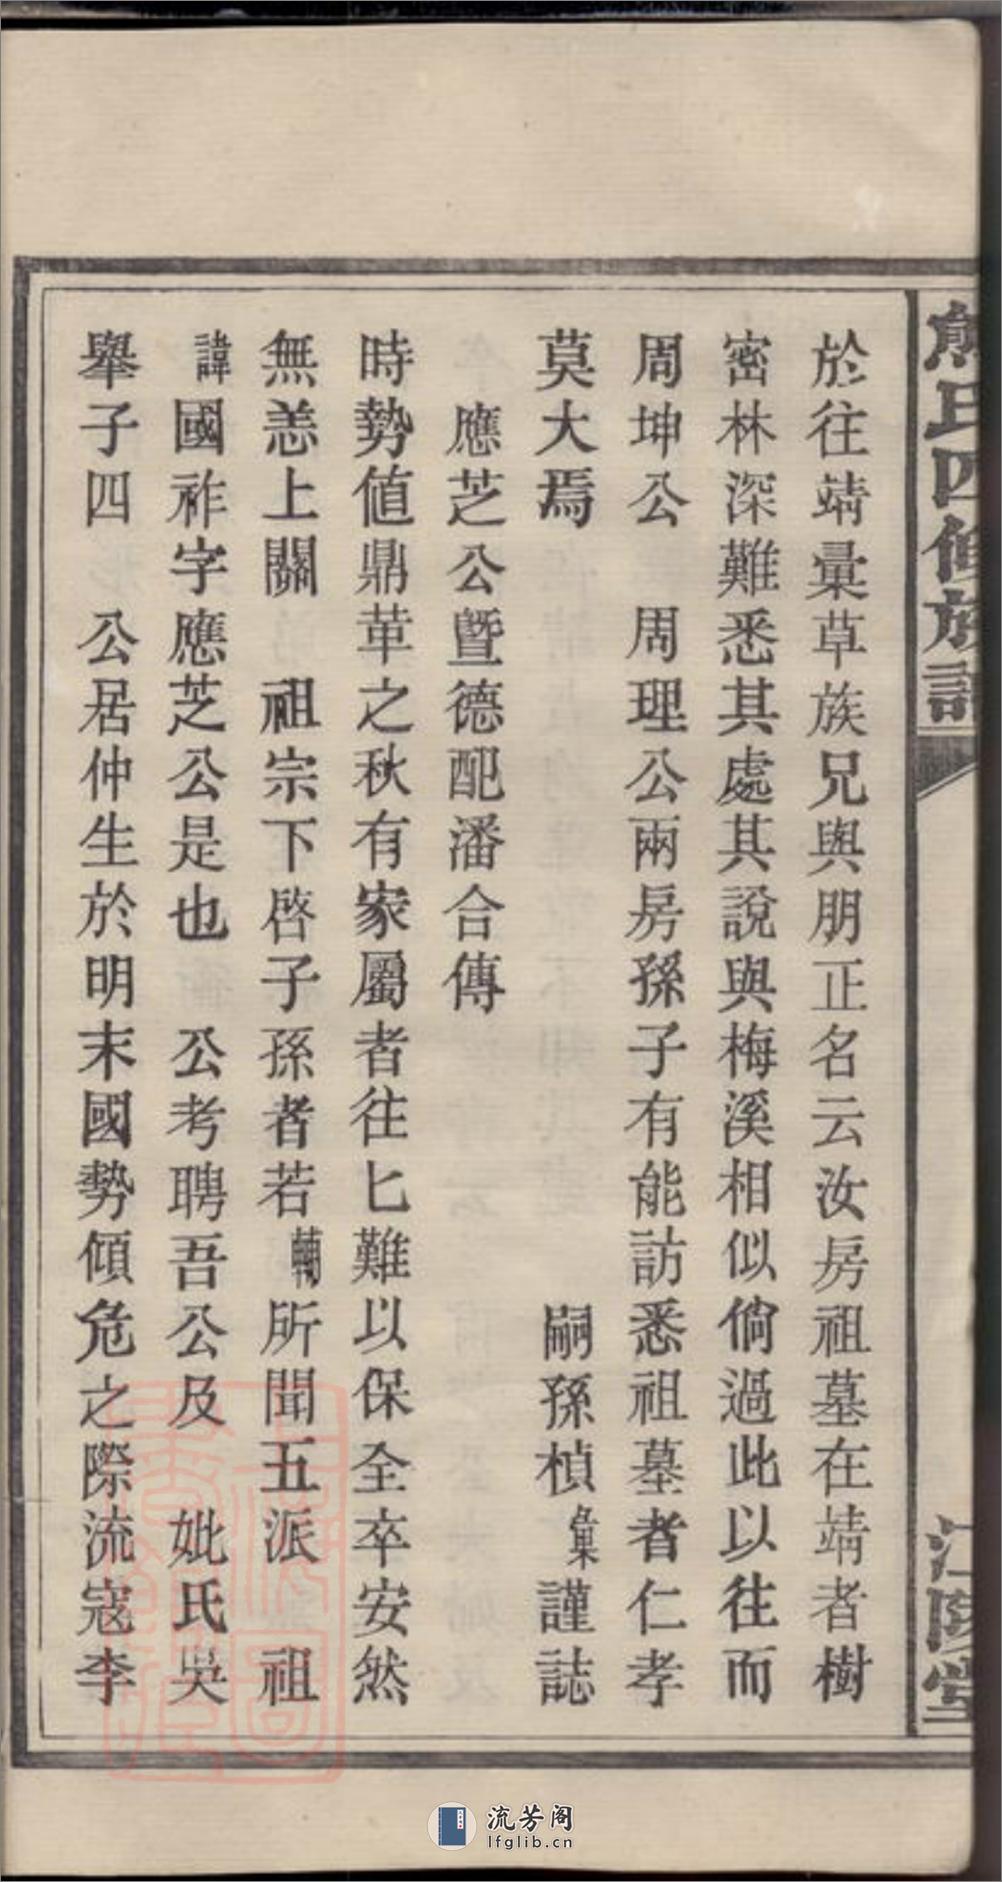 熊氏四修族譜
江陵堂
於往靖彙草族兄與朋正名云汝房祖墓在靖者樹
密林深難悉其處其說與梅溪相似倘過此以往而
周坤公　周理公兩房孫子有能訪悉祖墓者仁孝
莫大焉　嗣孫楨彙謹誌
應芝公曁德配潘合傳
時勢值鼎革之秋有家屬者往匕難以保全卒安然
無恙上關　祖宗下啓子孫者若輔所聞五派　祖
諱國祚字應芝公是也　公考聘吾公及　妣氏吳
舉子四　公居仲生於明末國勢傾危之際流寇李
流芳阁
lfglib.cn